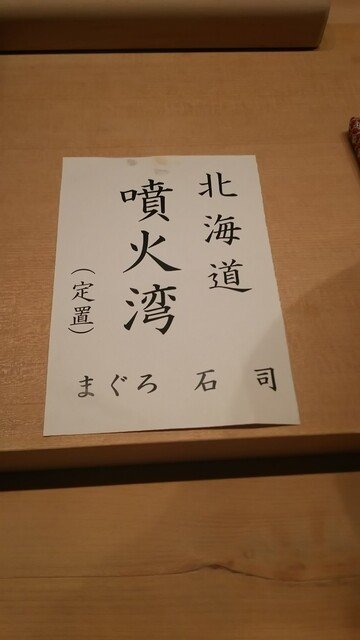 北海道
噴火湾
（定置）
まぐろ 石司